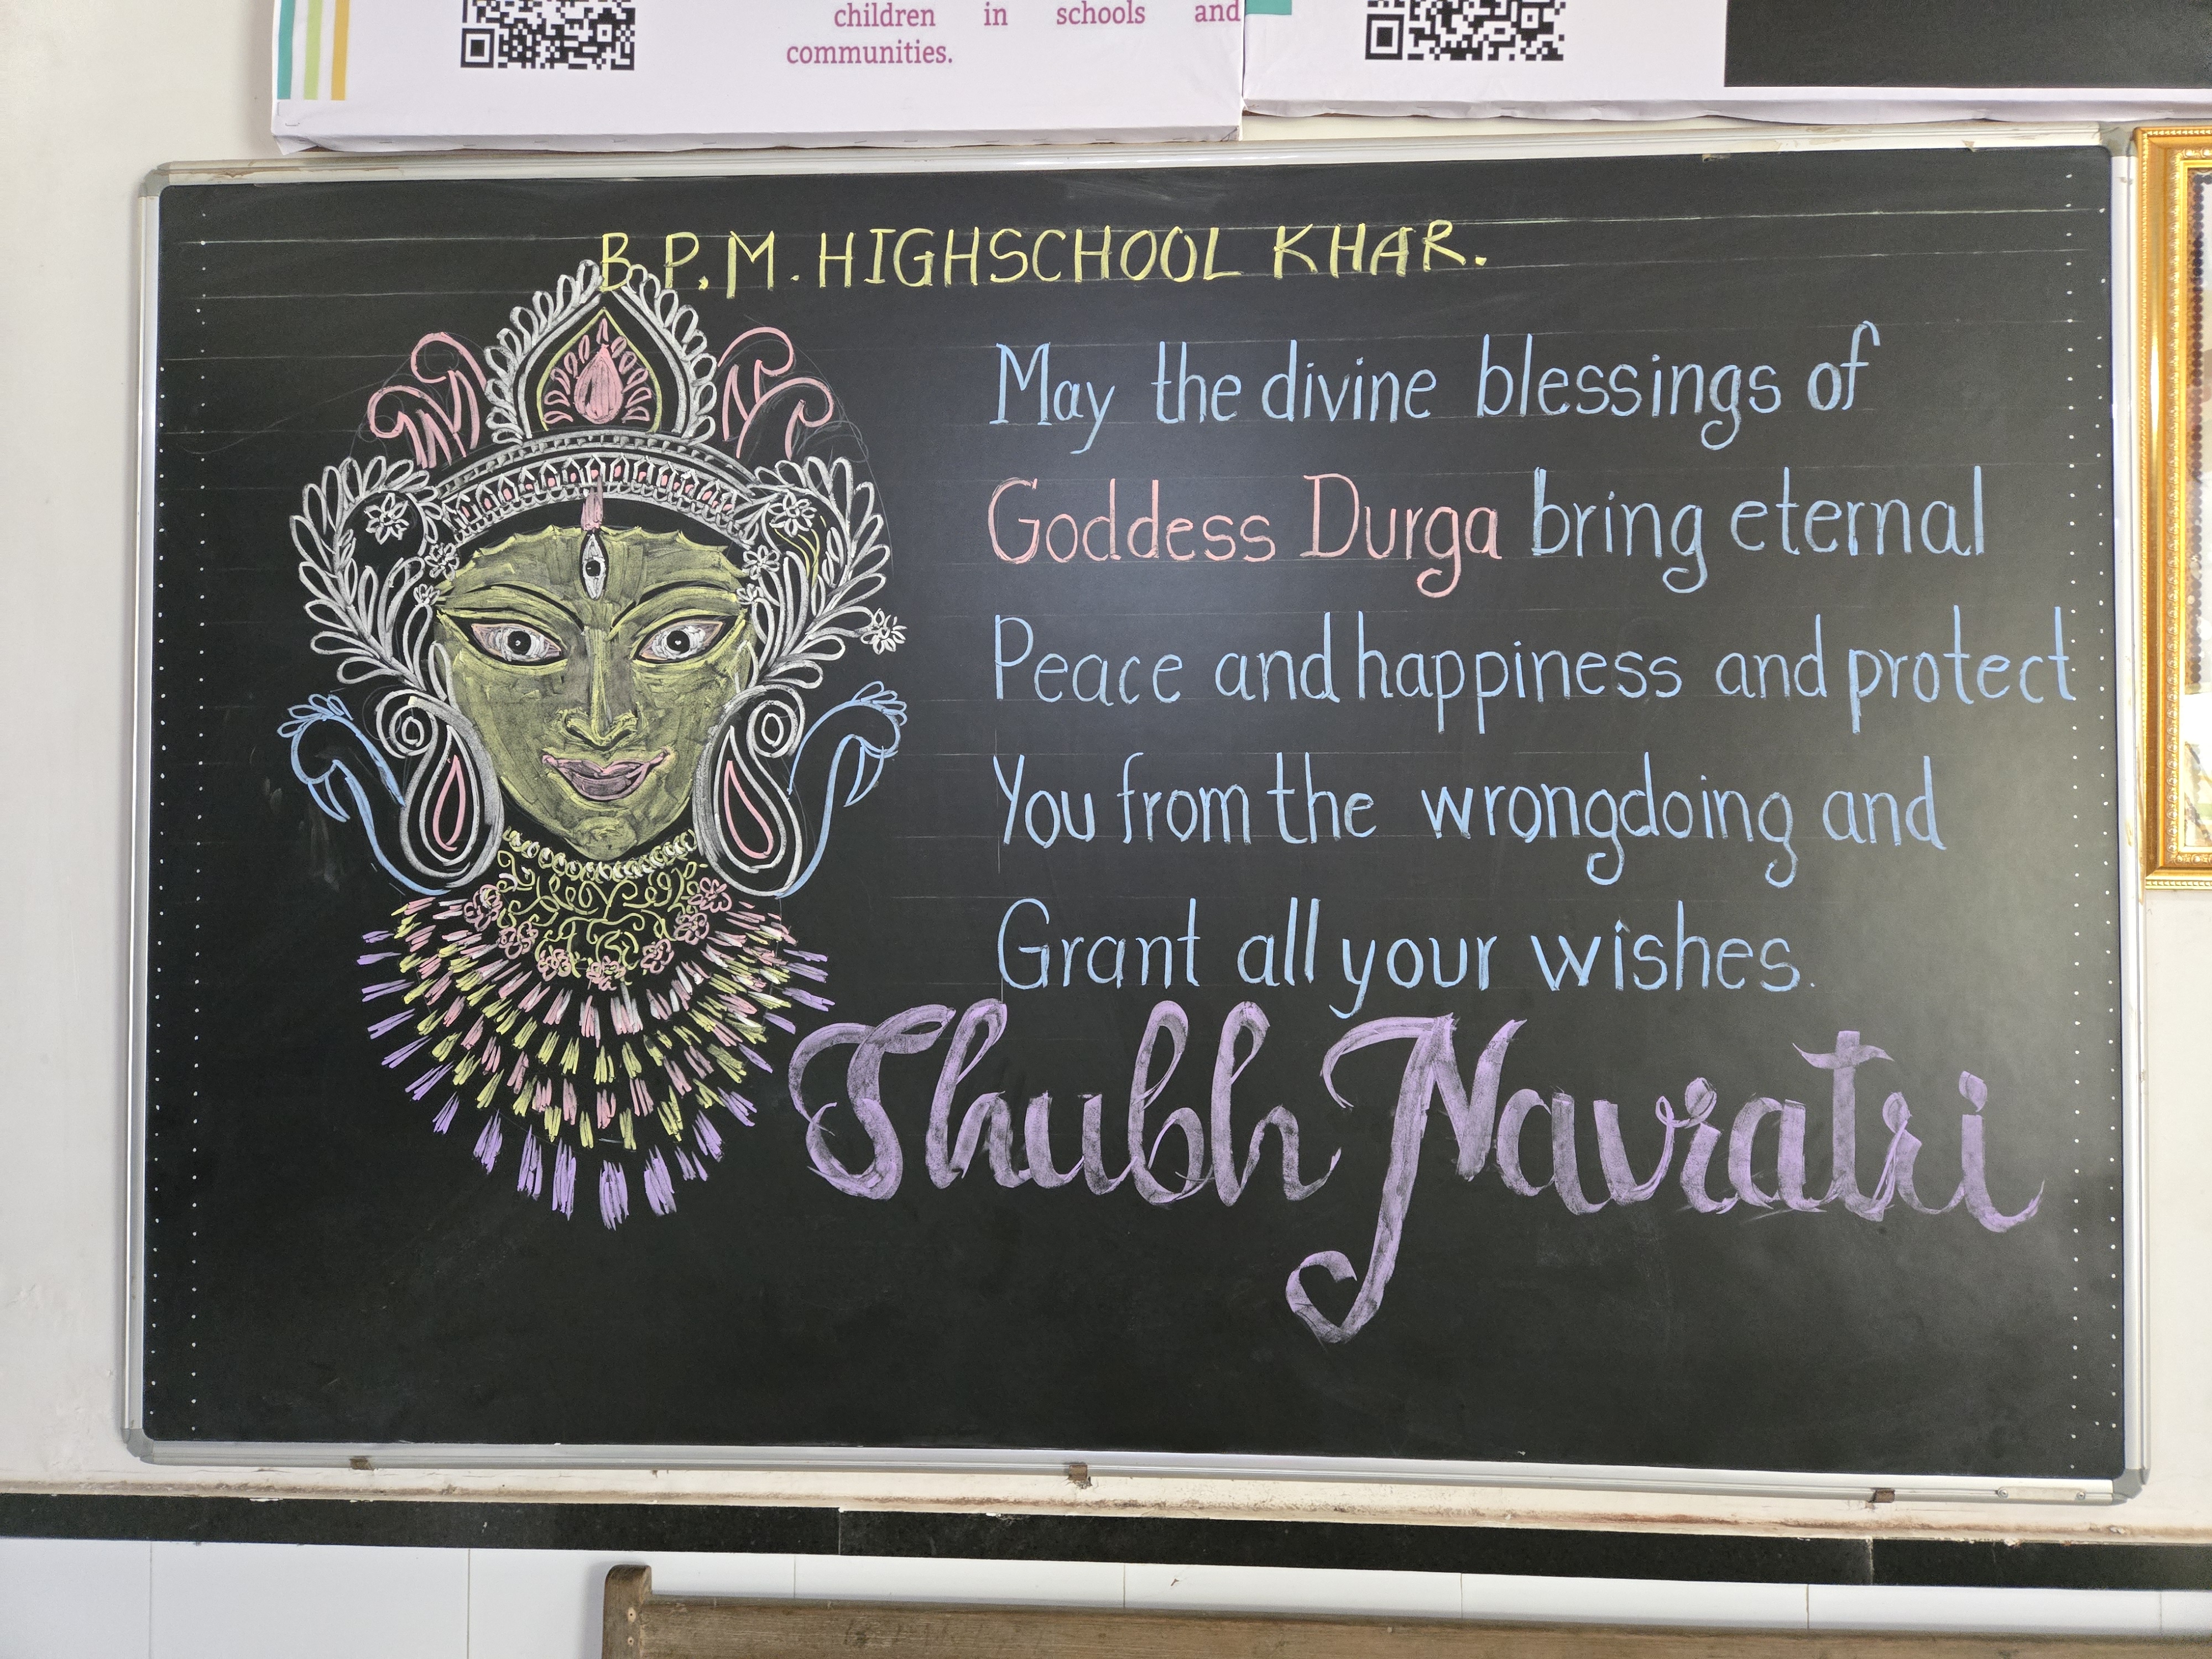 children in schools and
communities.
B.P.M. HIGHSCHOOL KHAR.
May the divine blessings of
Goddess Durga bring eternal
Peace and happiness and protect
You from the wrongdoing and
Grant all your wishes.
Shubh Navratri